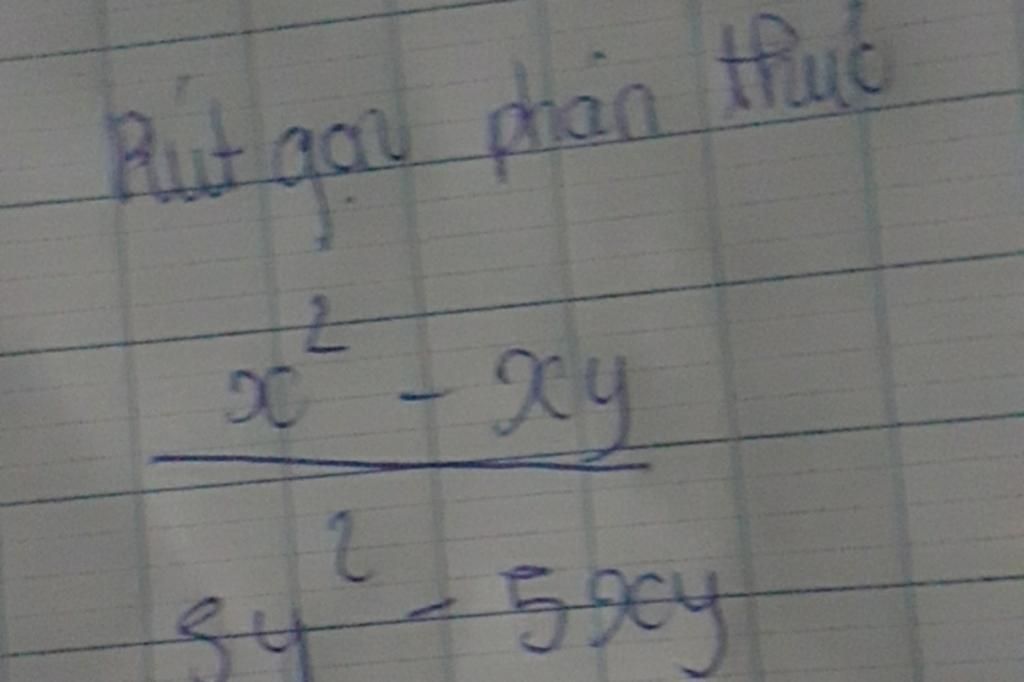 Rút gọn phân thức
x² - xy
5y² - 5xy